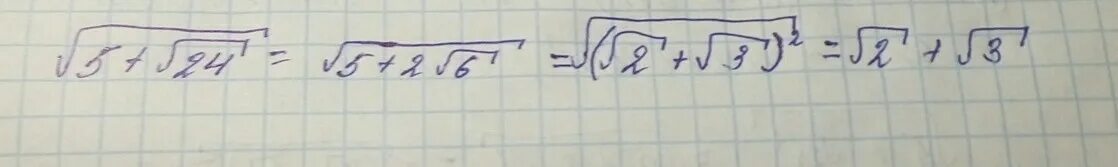 √(5 + √24) = √(5 + 2√6) = √((√2 + √3)²) = √2 + √3